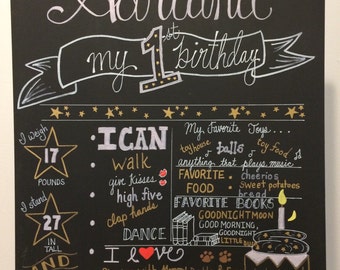 my 1st birthday
I weigh
17
POUNDS
I stand
27
IN
TALL
AND
I CAN
walk
give kisses
high five
clap hands
DANCE
I
My Favorite Toys...
toyhouse balls toy food
anything that plays music
FAVORITE FOOD
cheerios
sweet potatoes
bread
FAVORITE BOOKS
GOODNIGHT MOON
GOOD MORNING,
GOODNIGHT
LITTLE